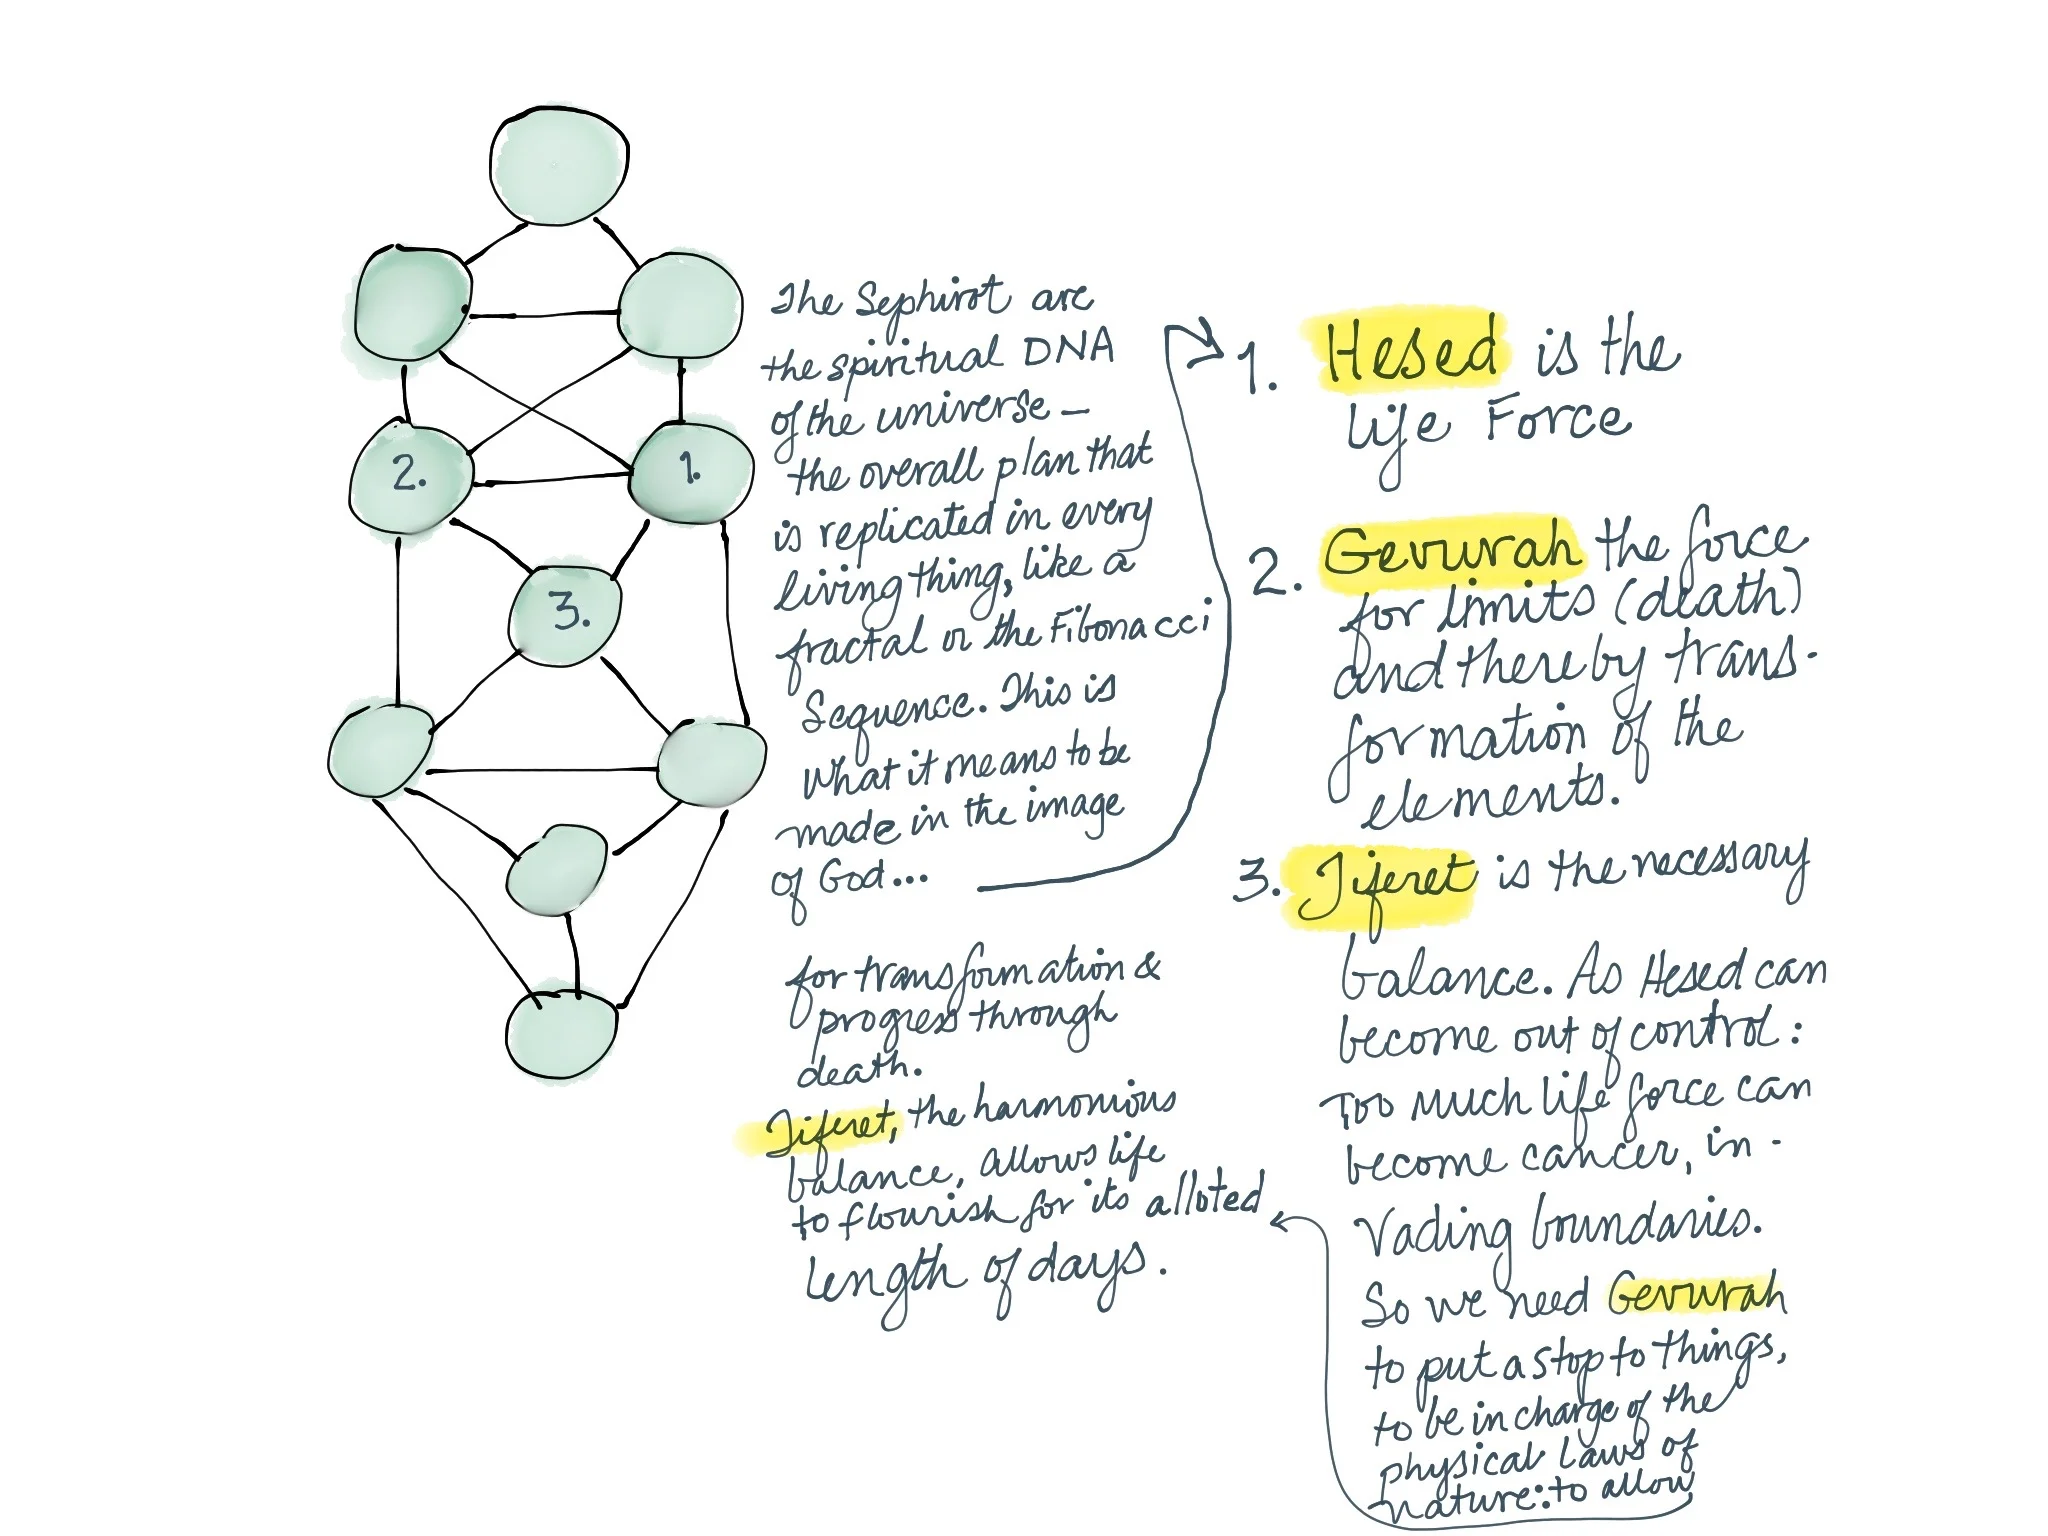 2.
1.
3.
The Sephirot are
the spiritual DNA
of the universe –
the overall plan that
is replicated in every
living thing, like a
fractal or the Fibonacci
Sequence. This is
What it means to be
made in the image
of God...
1. Hesed is the
life Force
2. Gevurah the force
for limits (death)
and thereby trans-
formation of the
elements.
3. Tiferet is the necessary
balance. As Hesed can
become out of control:
Too much life force can
become cancer, in-
vading boundaries.
So we need Gevurah
to put a stop to things,
to be in charge of the
physical Laws of
nature: to allow
for transformation &
progress through
death.
Tiferet, the harmonious
balance, allows life
to flourish for its alloted
length of days.